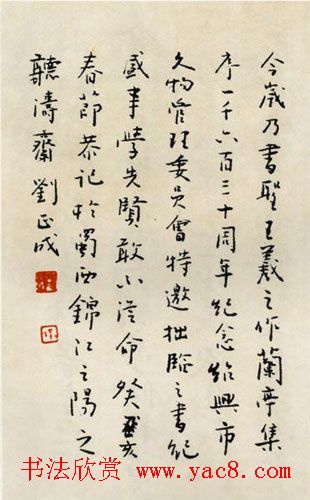 今歲乃書聖王羲之作蘭亭集
序一千六百三十周年紀念紹興市
文物管理委员會特邀拙臨之書紀
盛事學先賢敢不從命癸亥
春節恭记於蜀西錦江之陽之
聽濤齋劉正成
书法欣赏 www.yac8.com